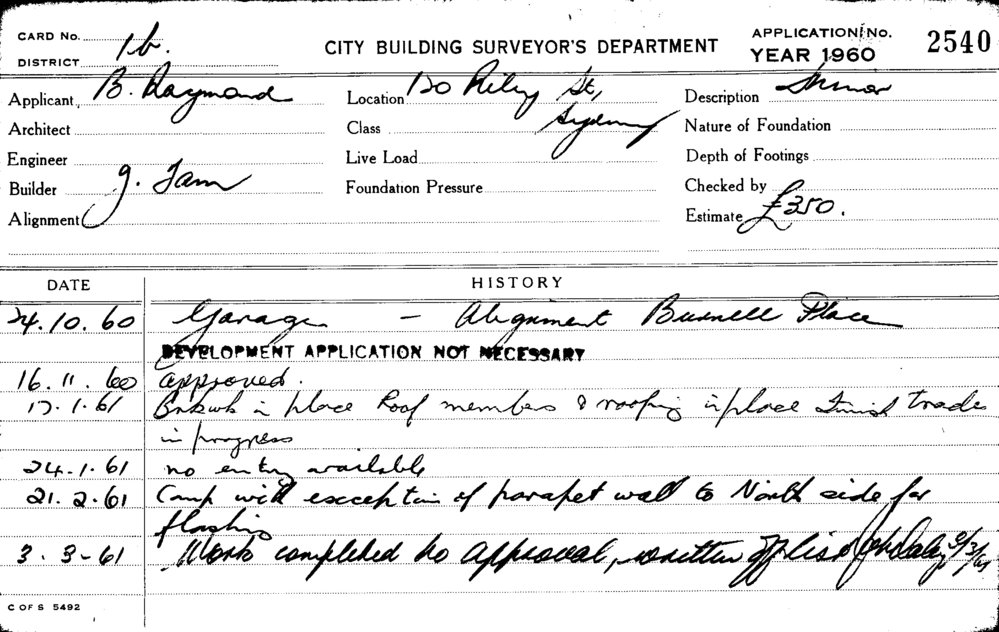 CARD No. 1b.
DISTRICT
CITY BUILDING SURVEYOR'S DEPARTMENT
APPLICATION No. 2540
YEAR 1960
Applicant B. Raymond
Location 120 Riley St,
Sydney
Description Minor
Architect
Class
Nature of Foundation
Engineer
Live Load
Depth of Footings
Builder J. Tam
Foundation Pressure
Checked by
Alignment
Estimate £350.
DATE HISTORY
24.10.60 Garage - Alignment Burnell Place
DEVELOPMENT APPLICATION NOT NECESSARY
16.11.60 approved.
17.1.61 Brkwk in place Roof members & roofing in place Finish trades
in progress
24.1.61 no entry available
21.2.61 Comp with exception of parapet wall to North side for
flashing
3-3-61 Work completed to approval, written off list 9/3/61
C OF S 5492